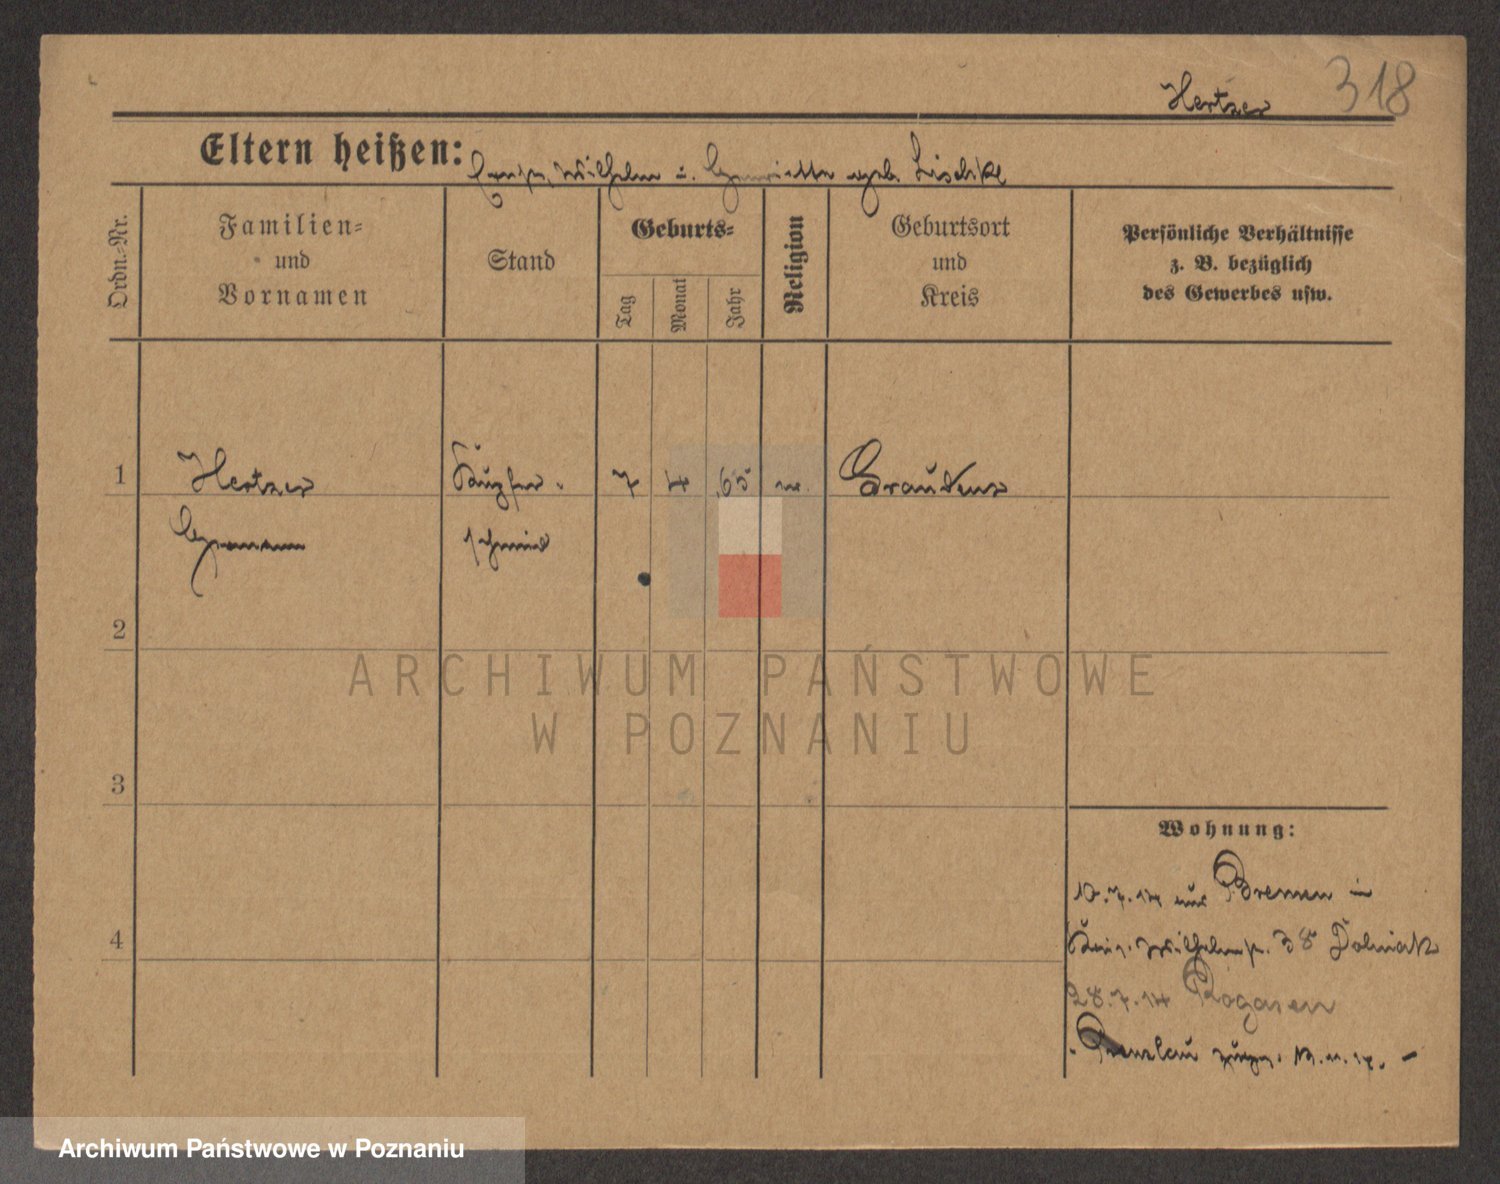 Hertzer 318
Eltern heißen: Wilhelm u. Henriette geb. Lischke
Ordn.-Nr.
Familien-
und
Vornamen
Stand
Geburts-
Tag
Monat
Jahr
Religion
Geburtsort
und
Kreis
Persönliche Verhältnisse
z. B. bezüglich
des Gewerbes usw.
1 Hertzer Kupfer- 7 4 65 Graudenz
Hermann schmied
2
ARCHIWUM PAŃSTWOWE
W POZNANIU
3
Wohnung:
10.7.14 aus Bremen in
4
Wilhelmstr. 38 Dolniak
28.7.14 Rogasen
Prenzlau
Archiwum Państwowe w Poznaniu